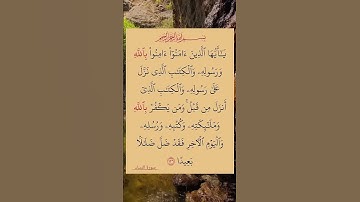 بسم الله الرحمن الرحيم
يَـٰٓأَيُّهَا ٱلَّذِينَ ءَامَنُوٓا۟ ءَامِنُوا۟ بِٱللَّهِ
وَرَسُولِهِۦ وَٱلْكِتَـٰبِ ٱلَّذِى نَزَّلَ
عَلَىٰ رَسُولِهِۦ وَٱلْكِتَـٰبِ ٱلَّذِىٓ
أَنزَلَ مِن قَبْلُ ۚ وَمَن يَكْفُرْ بِٱللَّهِ
وَمَلَـٰٓئِكَتِهِۦ وَكُتُبِهِۦ وَرُسُلِهِۦ
وَٱلْيَوْمِ ٱلْـَٔاخِرِ فَقَدْ ضَلَّ ضَلَـٰلًۢا
بَعِيدًا ١٣٦
سورة النساء